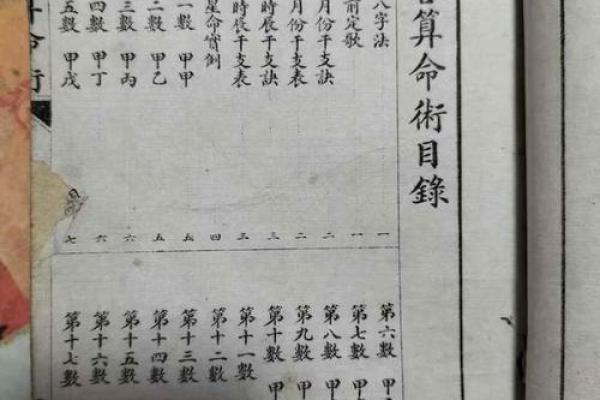 算命術目錄
八字法 一
前定歌 一
月份干支訣 二
月份干支表 二
時辰干支訣 三
時辰干支表 三
星命實例 四
一數 甲甲 五
二數 甲乙 五
三數 甲丙 六
四數 甲丁 六
五數 甲戊 七
第六數 甲
第七數 甲
第八數 甲
第九數 甲
第十數 甲
第十一數
第十二數
第十三數
第十四數
第十五數
第十六數
第十七數
算命術